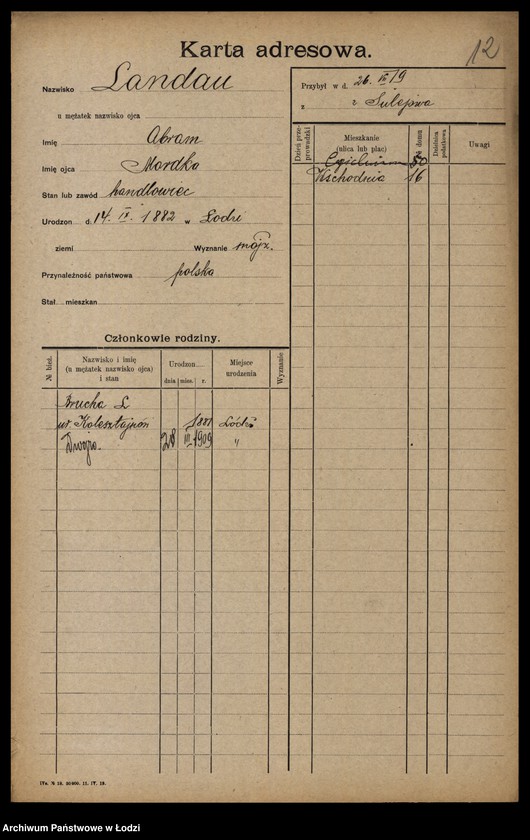 12
Karta adresowa.
Nazwisko Landau
u mężatek nazwisko ojca
Imię Abram
Imię ojca Mordka
Stan lub zawód handlowiec
Urodzon d. 14. IX. 1882 w Łodzi
ziemi Wyznanie mojż.
Przynależność państwowa polska
Stał. mieszkan
Przybył w d. 26. IV 19
z z Sulejowa
Dzień przeprowadzki
Mieszkanie (ulica lub plac)
№ domu
Dzielnica podatkowa
Uwagi
Cegielniana 50
Wschodnia 16
Członkowie rodziny.
№ bież.
Nazwisko i imię
(u mężatek nazwisko ojca)
i stan
Urodzon
dnia mies. r.
Miejsce
urodzenia
Wyznanie
Brucha L
ur. 1881 Łódź
Dwojra. 28 III 1909 "
IVa. № 18. 11. IV. 18.
Archiwum Państwowe w Łodzi